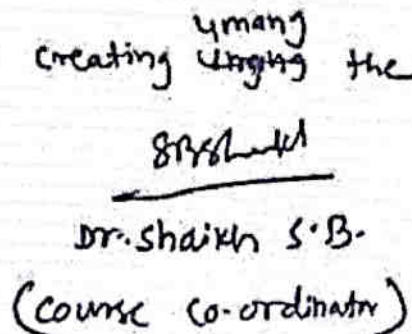 umang
creating the
Dr. Shaikh S.B.
(Course Co-ordinator)